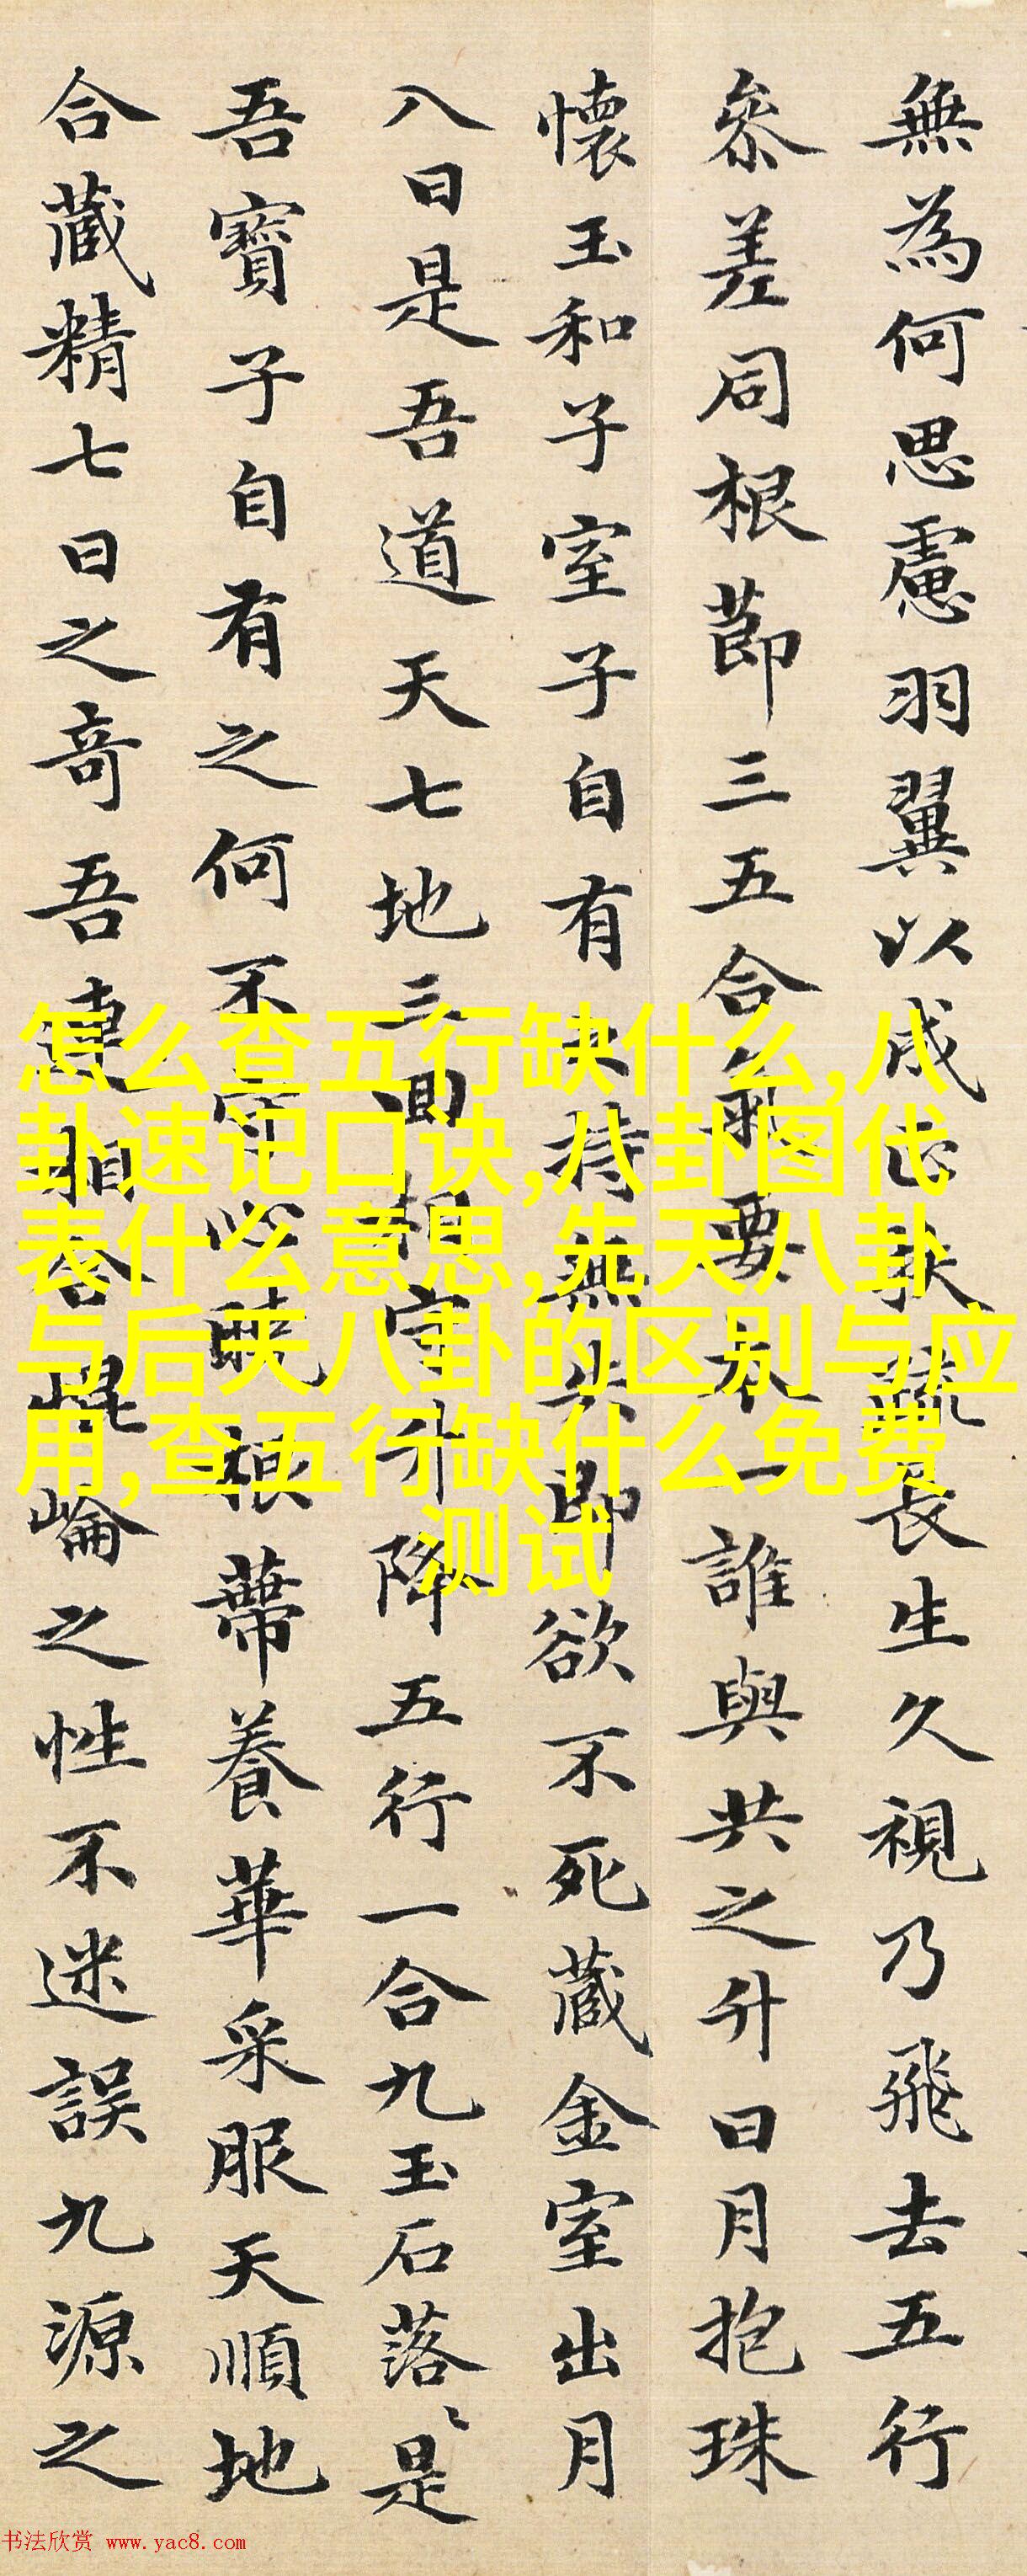 無為何思慮羽翼以成𠀋扶疏長生久視乃飛去五行
參差同根莭三五合氣要本一誰與共之升日月抱珠
懷玉和子室子自有之持無失即欲不死藏金室出月
八日是吾道天七地三回相守升降五行一合九玉石落〻是
吾寶子自有之何不守心曉根蔕養華采服天順地
合藏精七日之竒吾連相合崐崘之性不迷誤九源之
怎么查五行缺什么,八
卦速记口诀,八卦图代
表什么意思,先天八卦
与后天八卦的区别与应
用,查五行缺什么免费
测试
书法欣赏 www.yac8.com